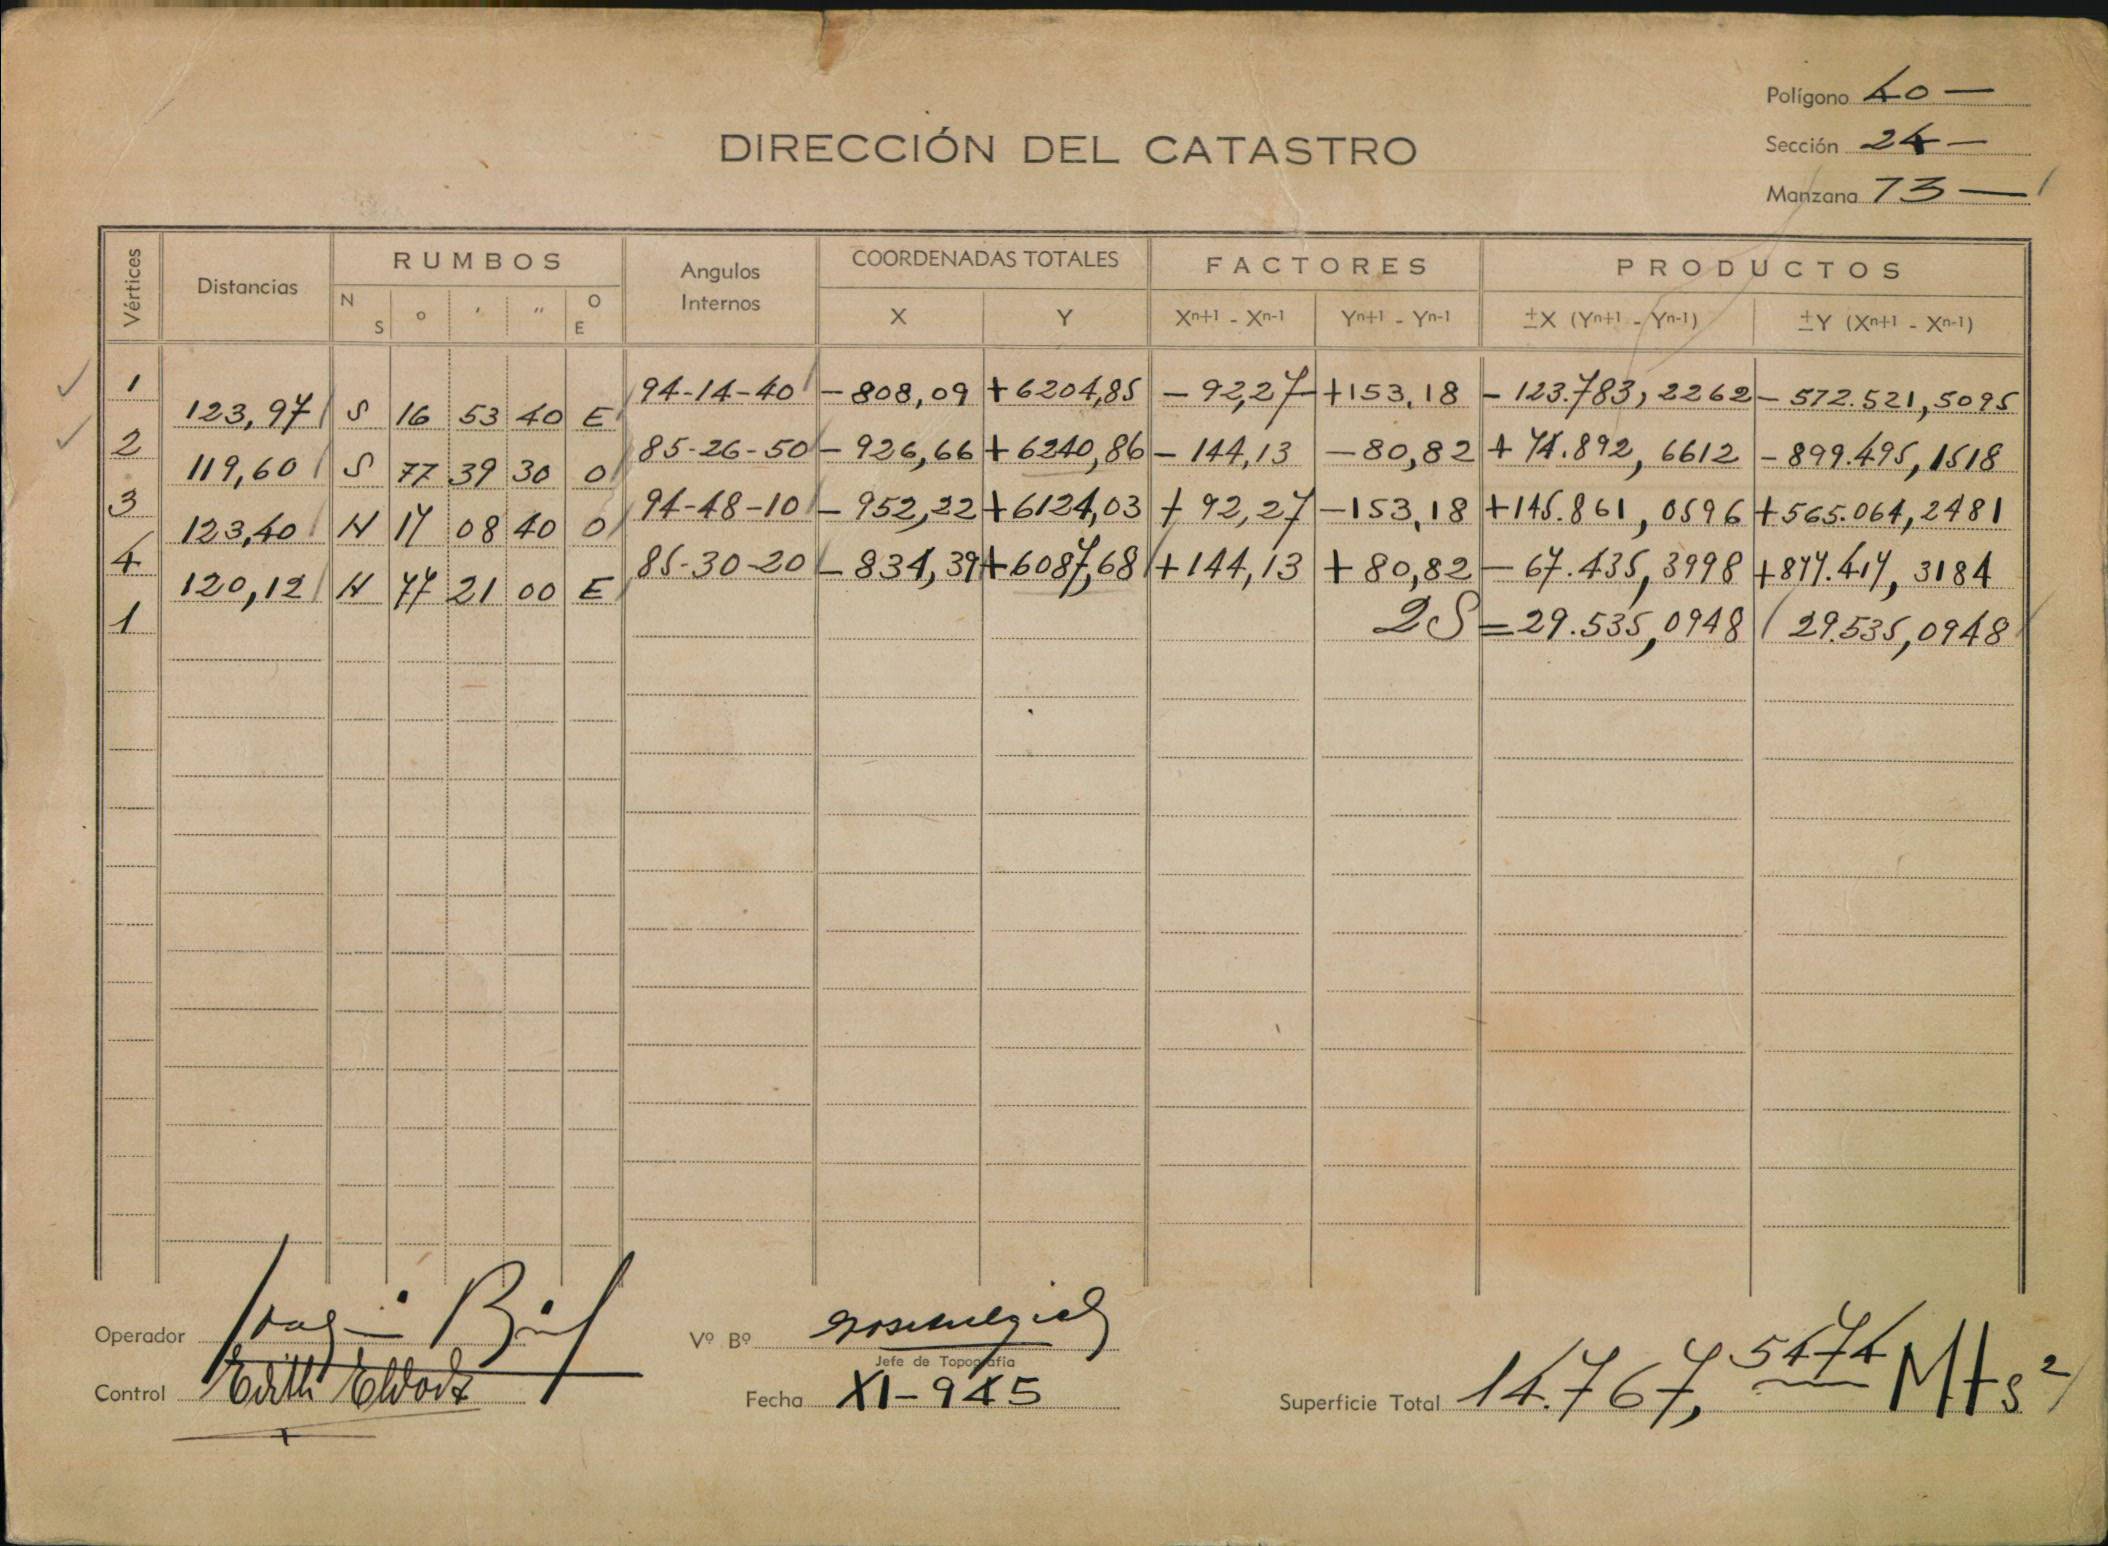 Polígono 40 —
DIRECCIÓN DEL CATASTRO
Sección 24 —
Manzana 73 —
Vértices Distancias RUMBOS Angulos Internos COORDENADAS TOTALES FACTORES PRODUCTOS
N S o ' " O E X Y Xn+1 - Xn-1 Yn+1 - Yn-1 ±X (Yn+1 - Yn-1) ±Y (Xn+1 - Xn-1)
1 94-14-40 -808,09 +6204,85 -92,27 +153,18 -123.783,2262 -572.521,5095
123,97 S 16 53 40 E
2 85-26-50 -926,66 +6240,86 -144,13 -80,82 +74.892,6612 -899.495,1518
119,60 S 77 39 30 O
3 94-48-10 -952,22 +6124,03 +92,27 -153,18 +145.861,0596 +565.064,2481
123,40 N 17 08 40 O
4 85-30-20 -834,39 +6087,68 +144,13 +80,82 -67.435,3998 +877.417,3184
120,12 N 77 21 00 E
1 2S = 29.535,0948 29.535,0948
Operador
Vº Bº
Jefe de Topografía
Control Edith
Fecha XI-945
Superficie Total 14.767,5474 Mts2